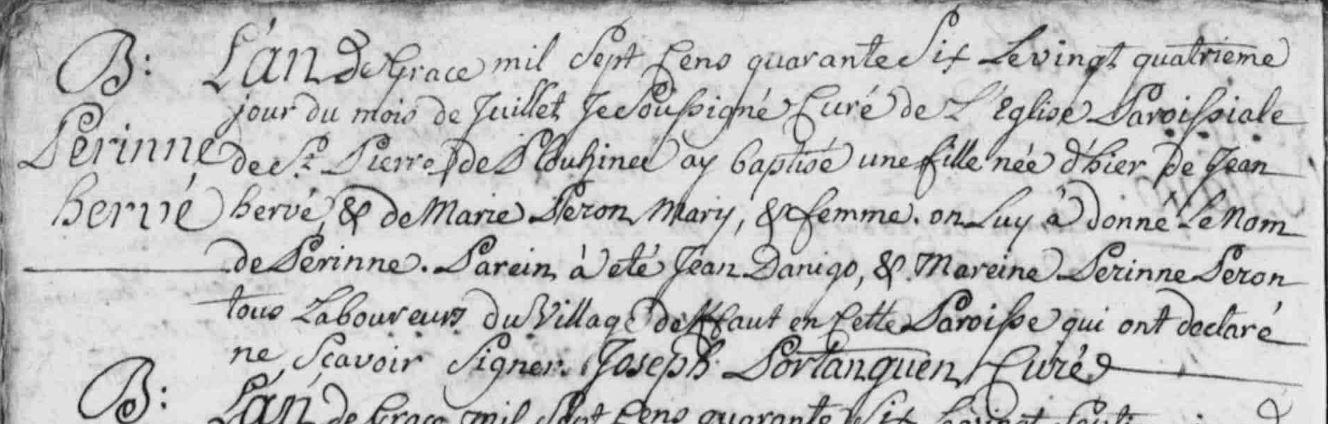 B: L'án de Grace mil Sept Cens quarante Six Le vingt quatrieme
jour du mois de Juillet Je Soussigné Curé de L'Eglise Paroissiale
Perinne de St. Pierre de Plouhineć ay baptisé une fille née d'hier de Jean
hervé hervé, & de Marie Peron Mary, & femme. on Luy á donné Le Nom
de Périnne. Parein à eté Jean Danigo, & Mareine Perinne Peron
tous Laboureurs du Village de en Cette Paroisse qui ont declaré
ne Scavoir Signer. Joseph Portanguen Curé
B: L'án de Grace mil Sept Cens quarante Six Le vingt